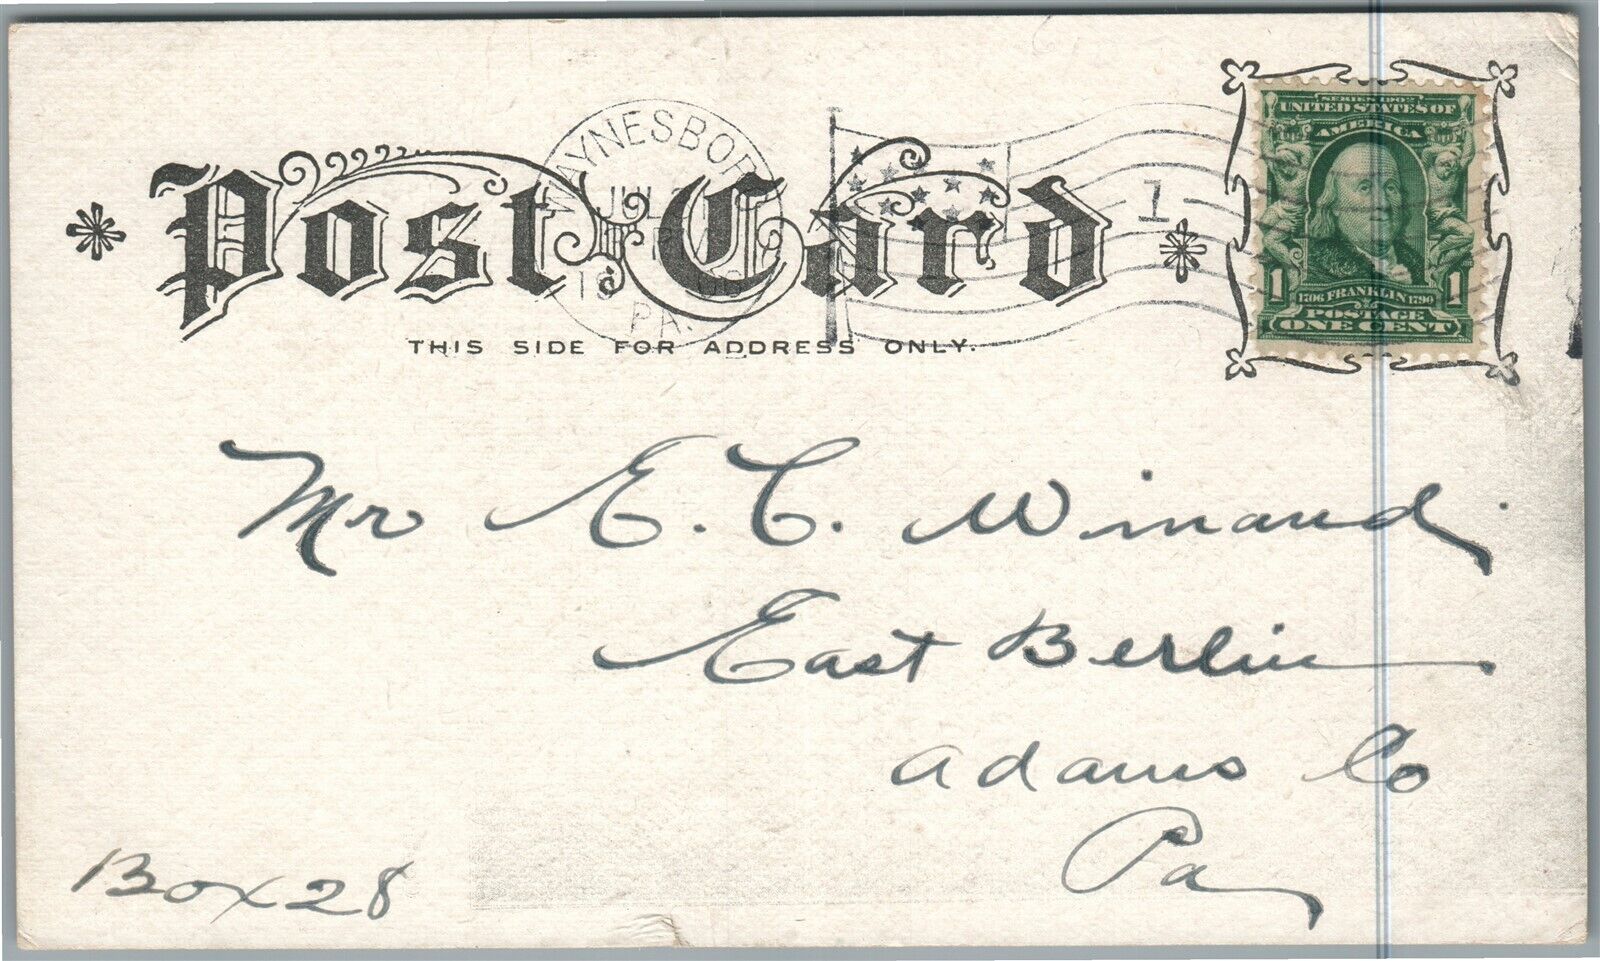 Post Card
THIS SIDE FOR ADDRESS ONLY.
WAYNESBORO
JUL
PA.
1
SERIES 1902
UNITED STATES OF
AMERICA
1 1706 FRANKLIN 1790 1
POSTAGE
ONE CENT
Mr E. C. Winand.
East Berlin
Adams Co
Pa
Box 28